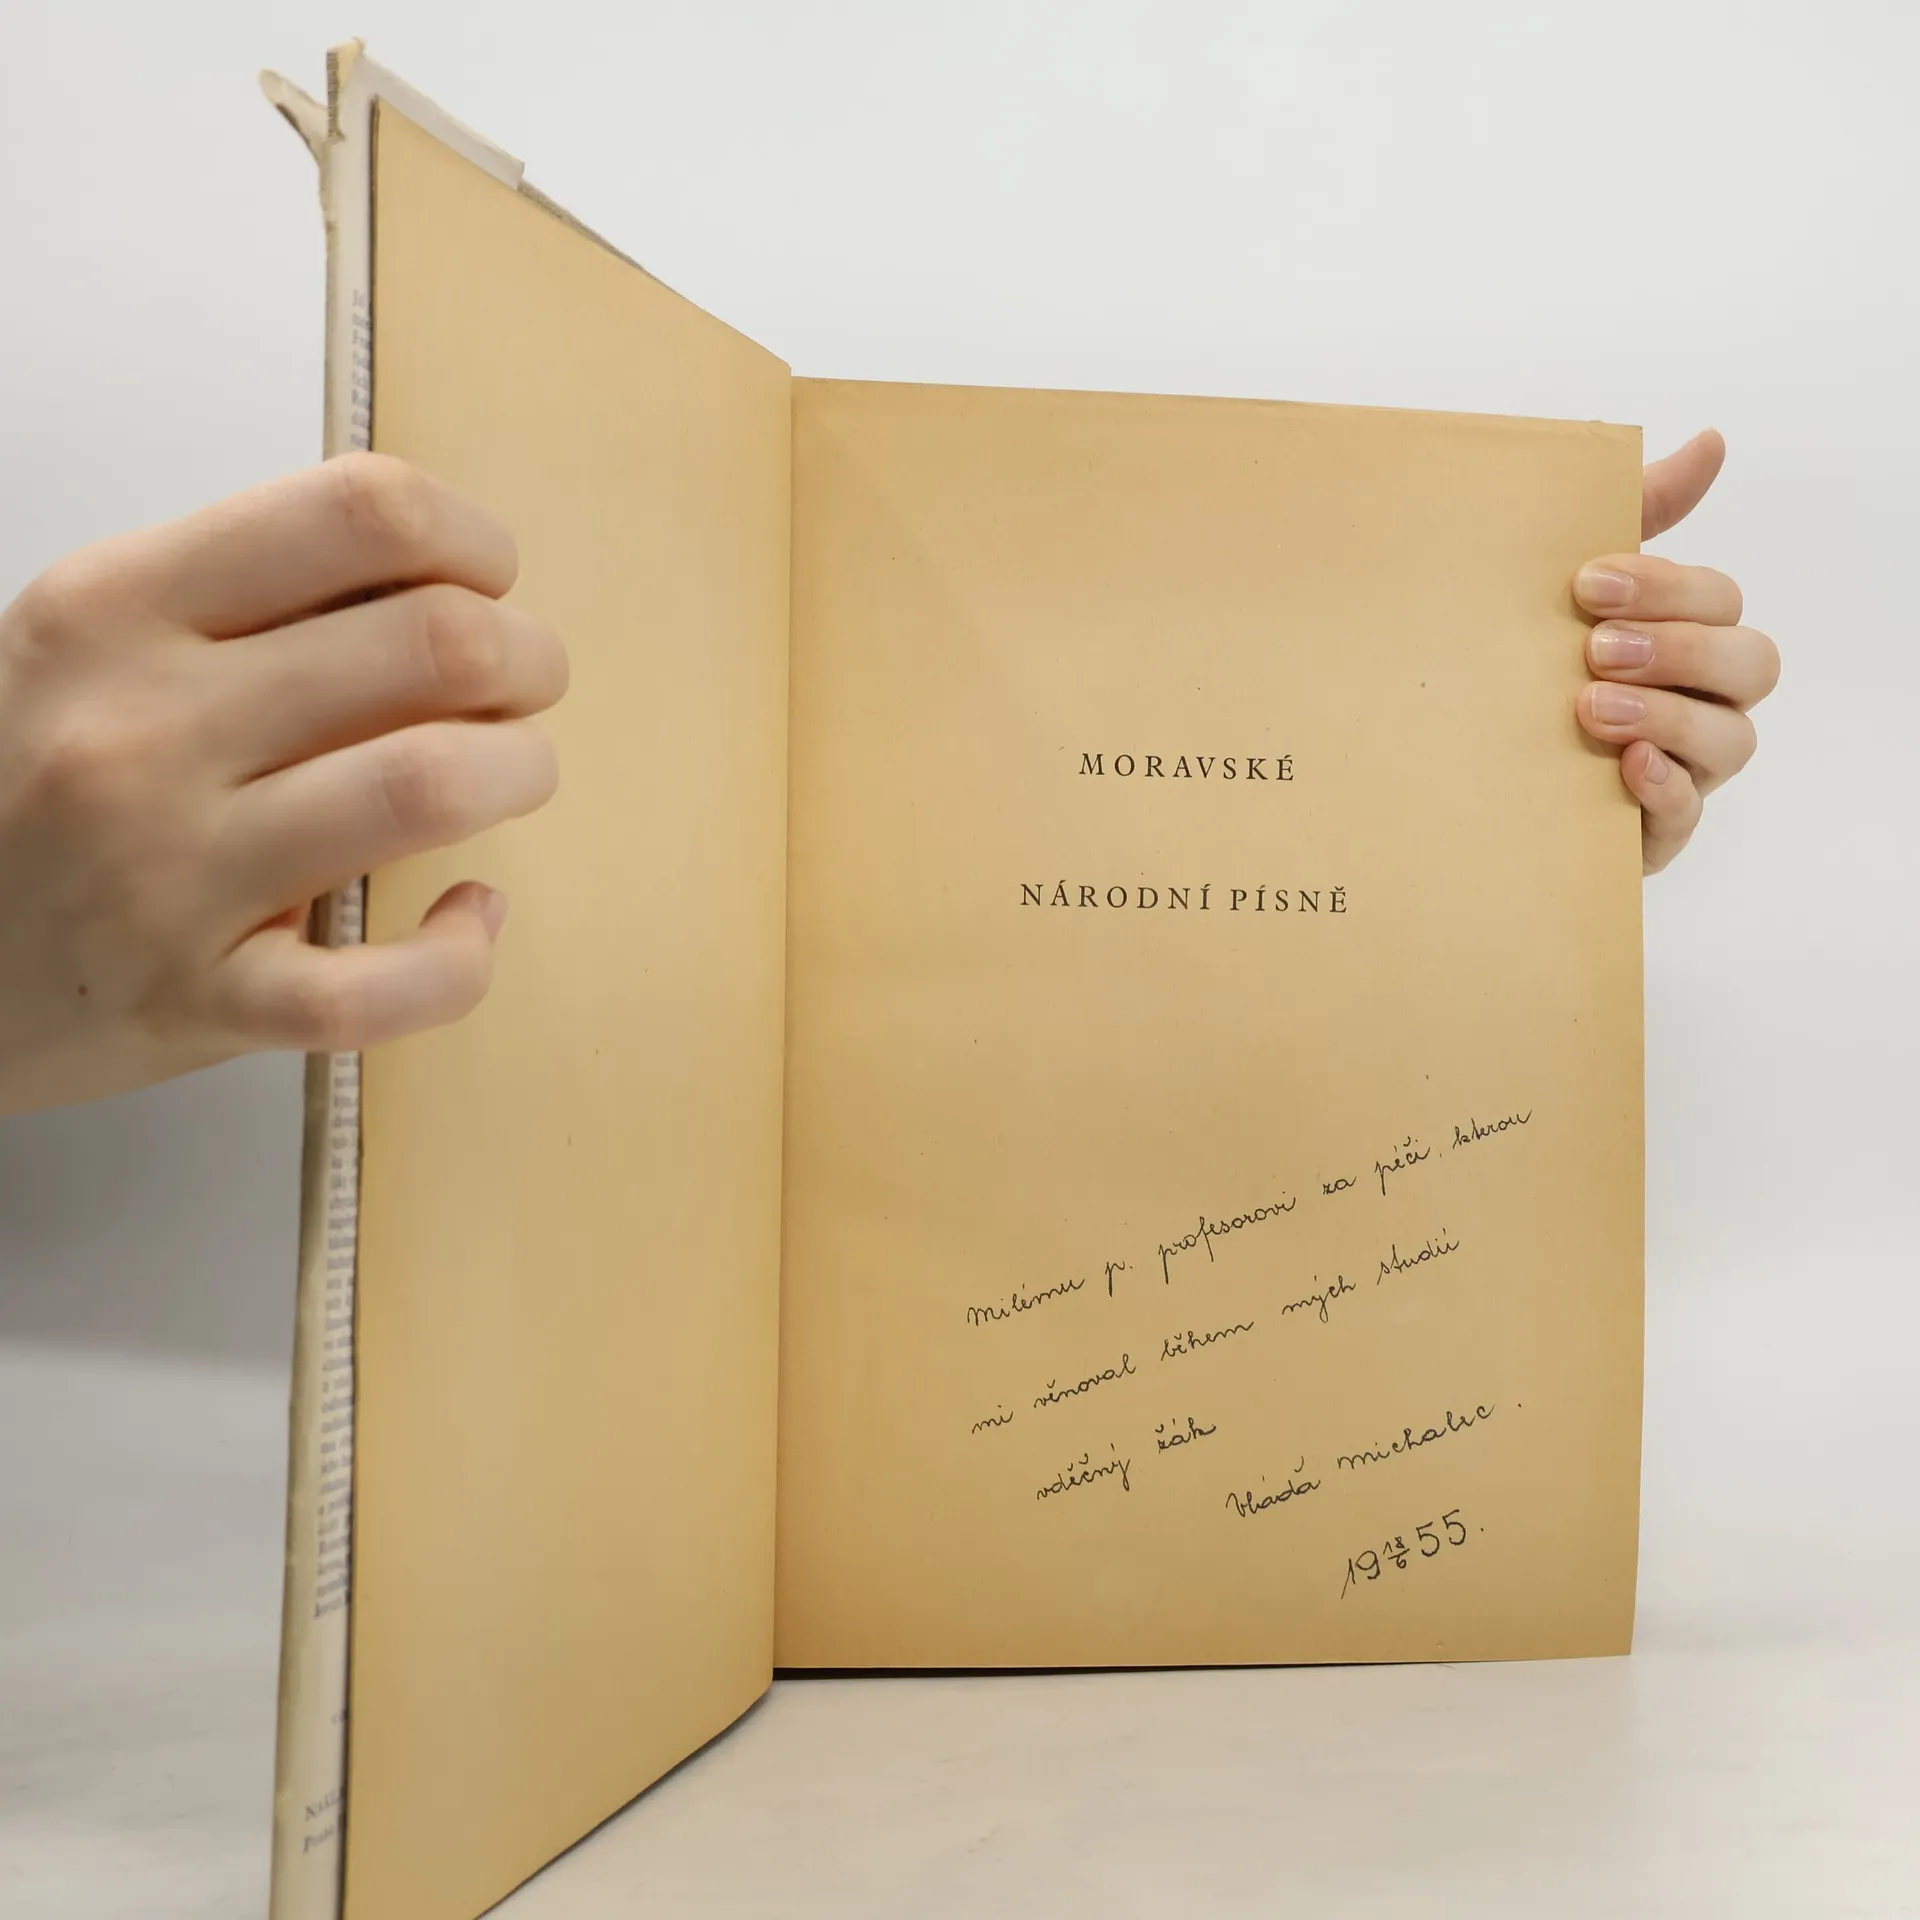 MORAVSKÉ
NÁRODNÍ PÍSNĚ
Milému p. profesorovi za péči, kterou
mi věnoval během mých studií
vděčný žák
Vláďa Michalec.
19 18/6 55.